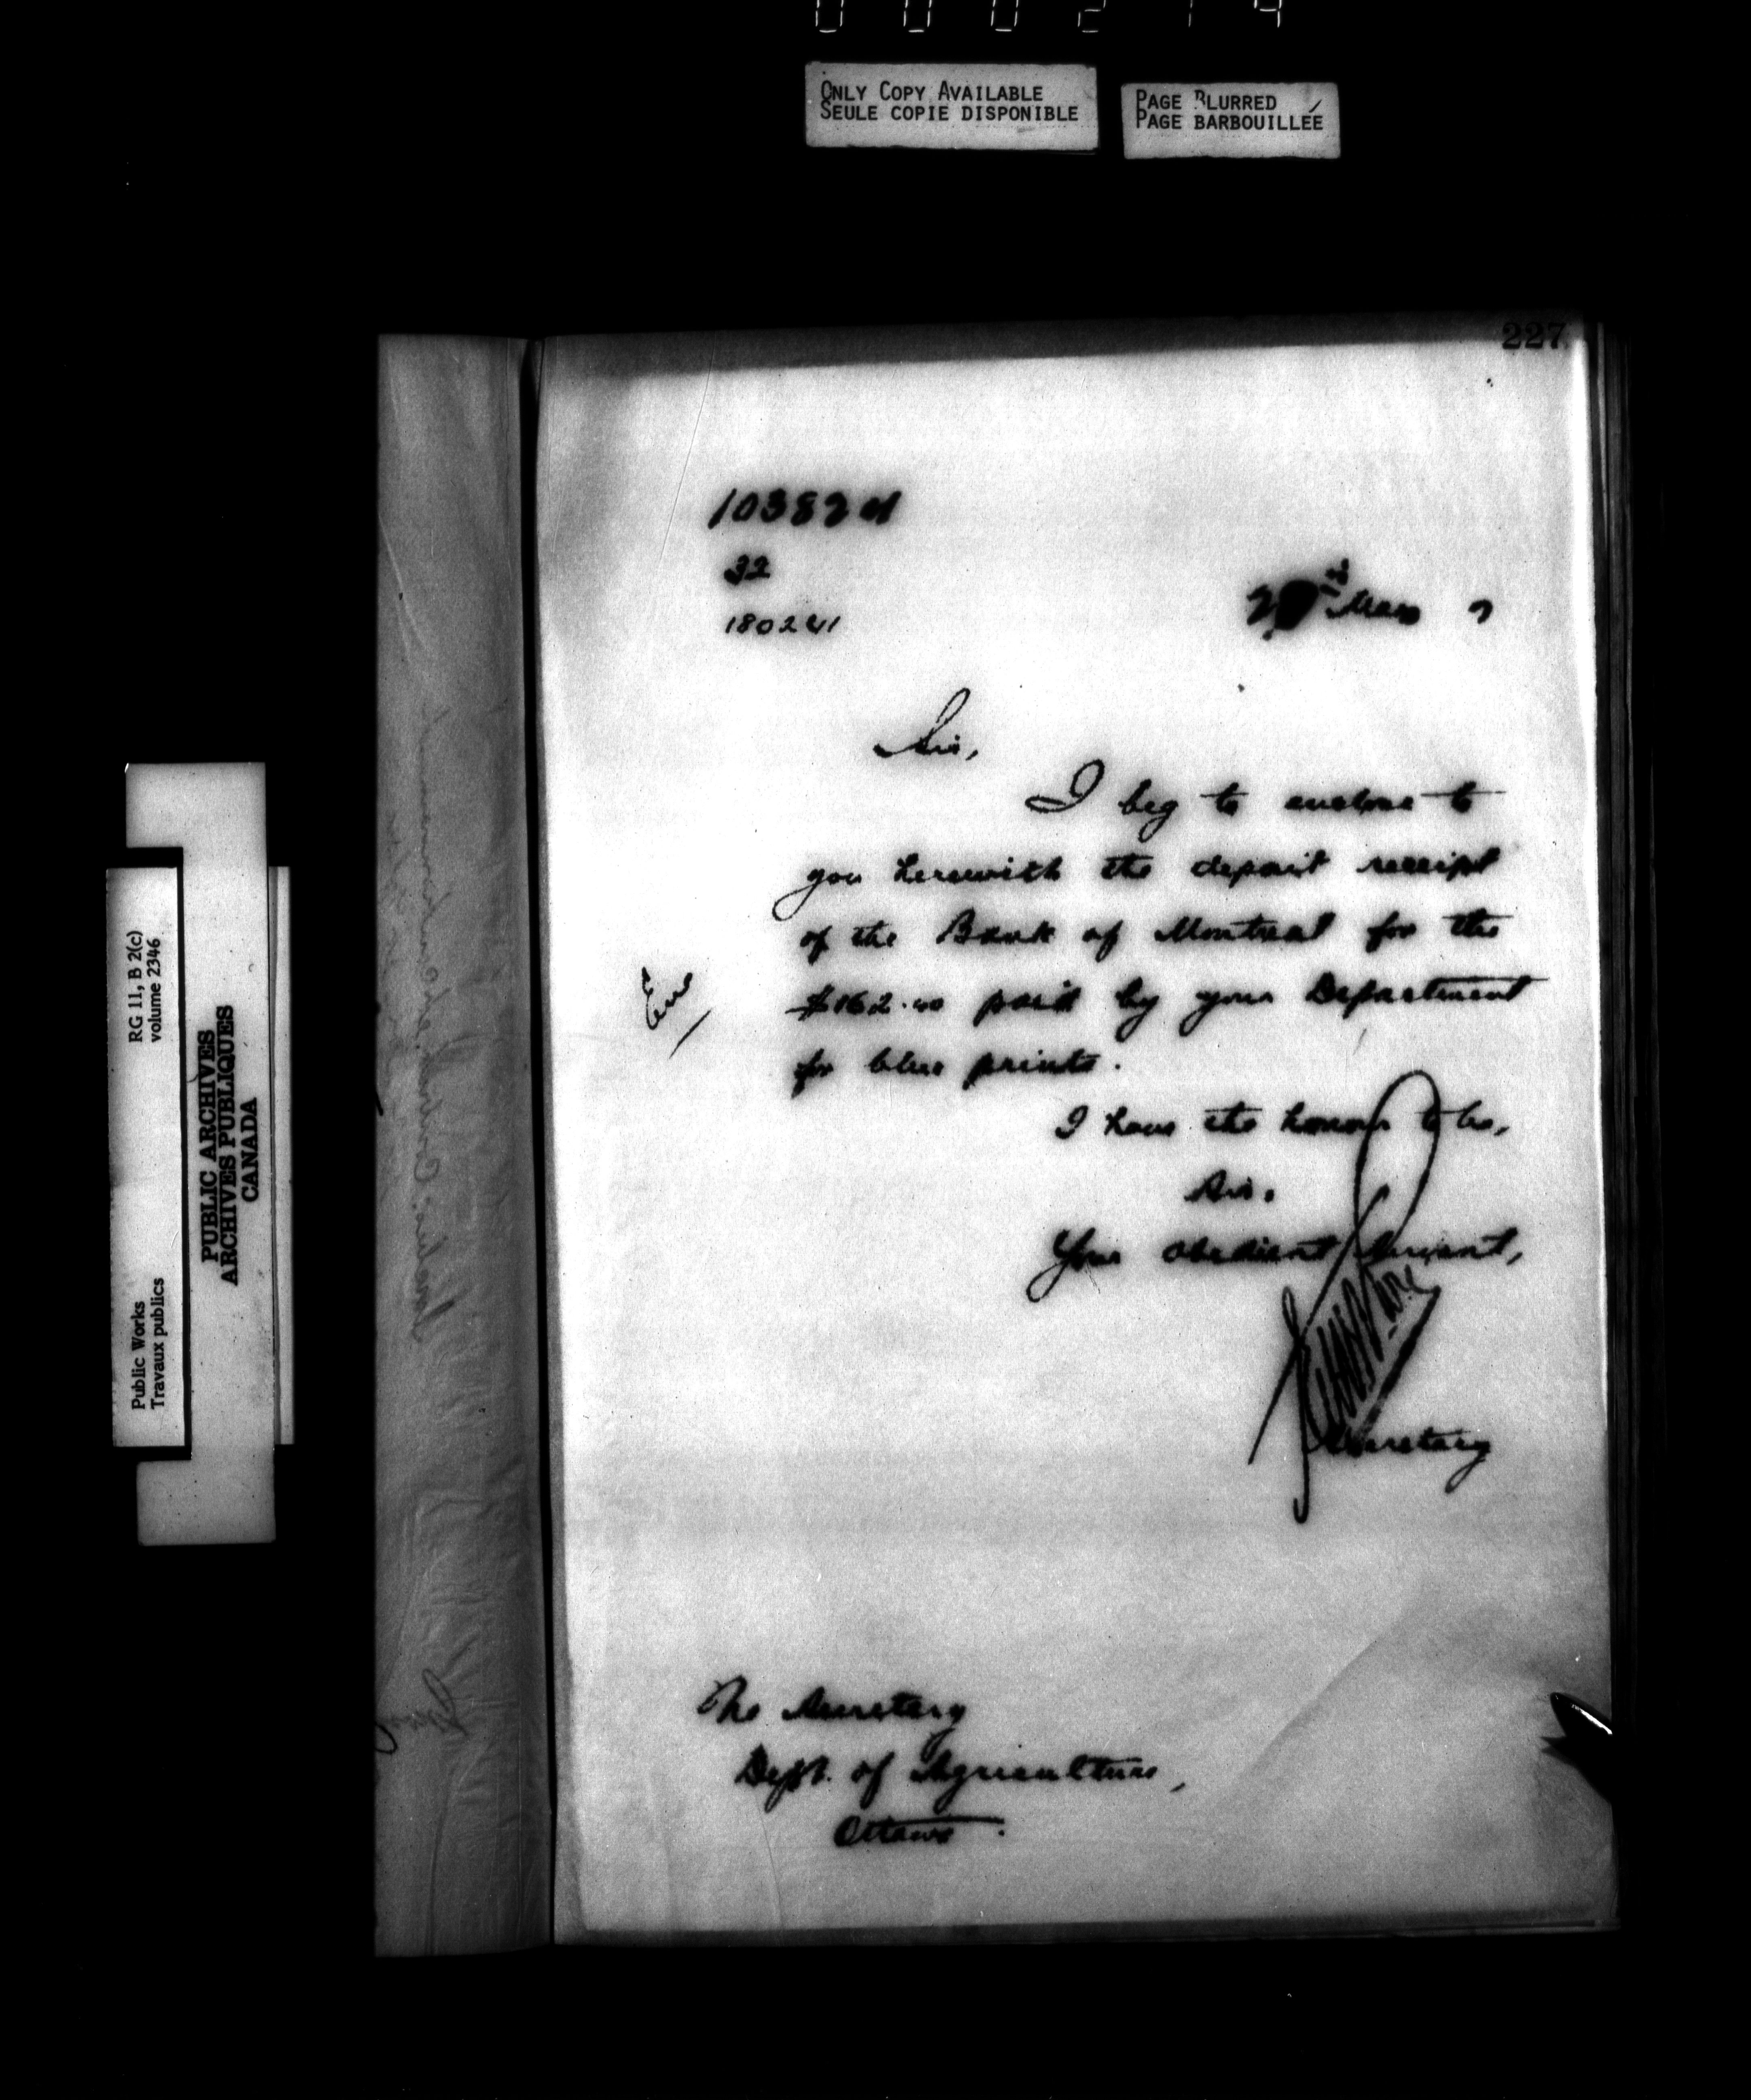 ONLY COPY AVAILABLE
SEULE COPIE DISPONIBLE
PAGE BLURRED
PAGE BARBOUILLÉE
227
32
May 7
Sir,
I beg to enclose to
you herewith the deposit receipt
of the Bank of Montreal for the
paid by your Department
for blue prints.
Enc
I have the honour to be,
Sir,
Your obedient Servant,
Secretary
The Secretary
Dept. of Agriculture,
Ottawa.
RG 11, B 2(c)
volume 2346
Public Works
Travaux publics
PUBLIC ARCHIVES
ARCHIVES PUBLIQUES
CANADA